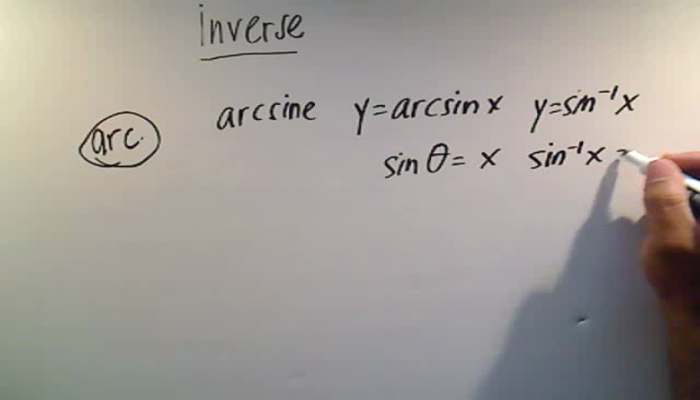 Inverse
arc. arcsine y=arcsin x y=sin⁻¹x
sin θ = x sin⁻¹x =